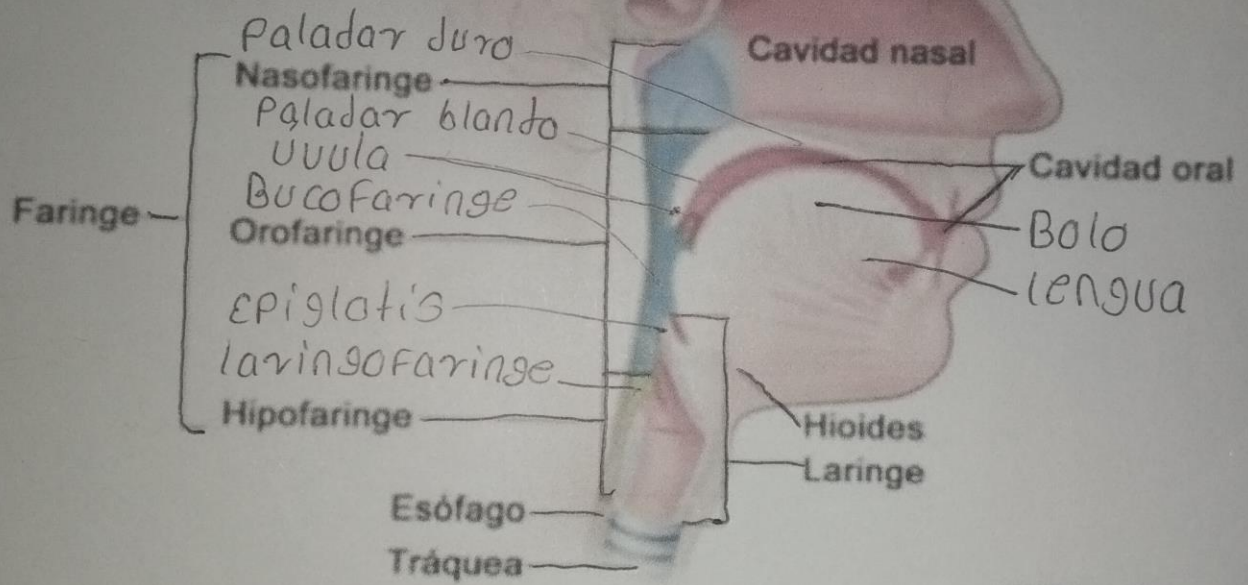 Paladar duro
Nasofaringe
Paladar blando
uvula
Bucofaringe
Orofaringe
Faringe
Epiglotis
laringofaringe
Hipofaringe
Esófago
Tráquea
Cavidad nasal
Cavidad oral
Bolo
lengua
Hioides
Laringe